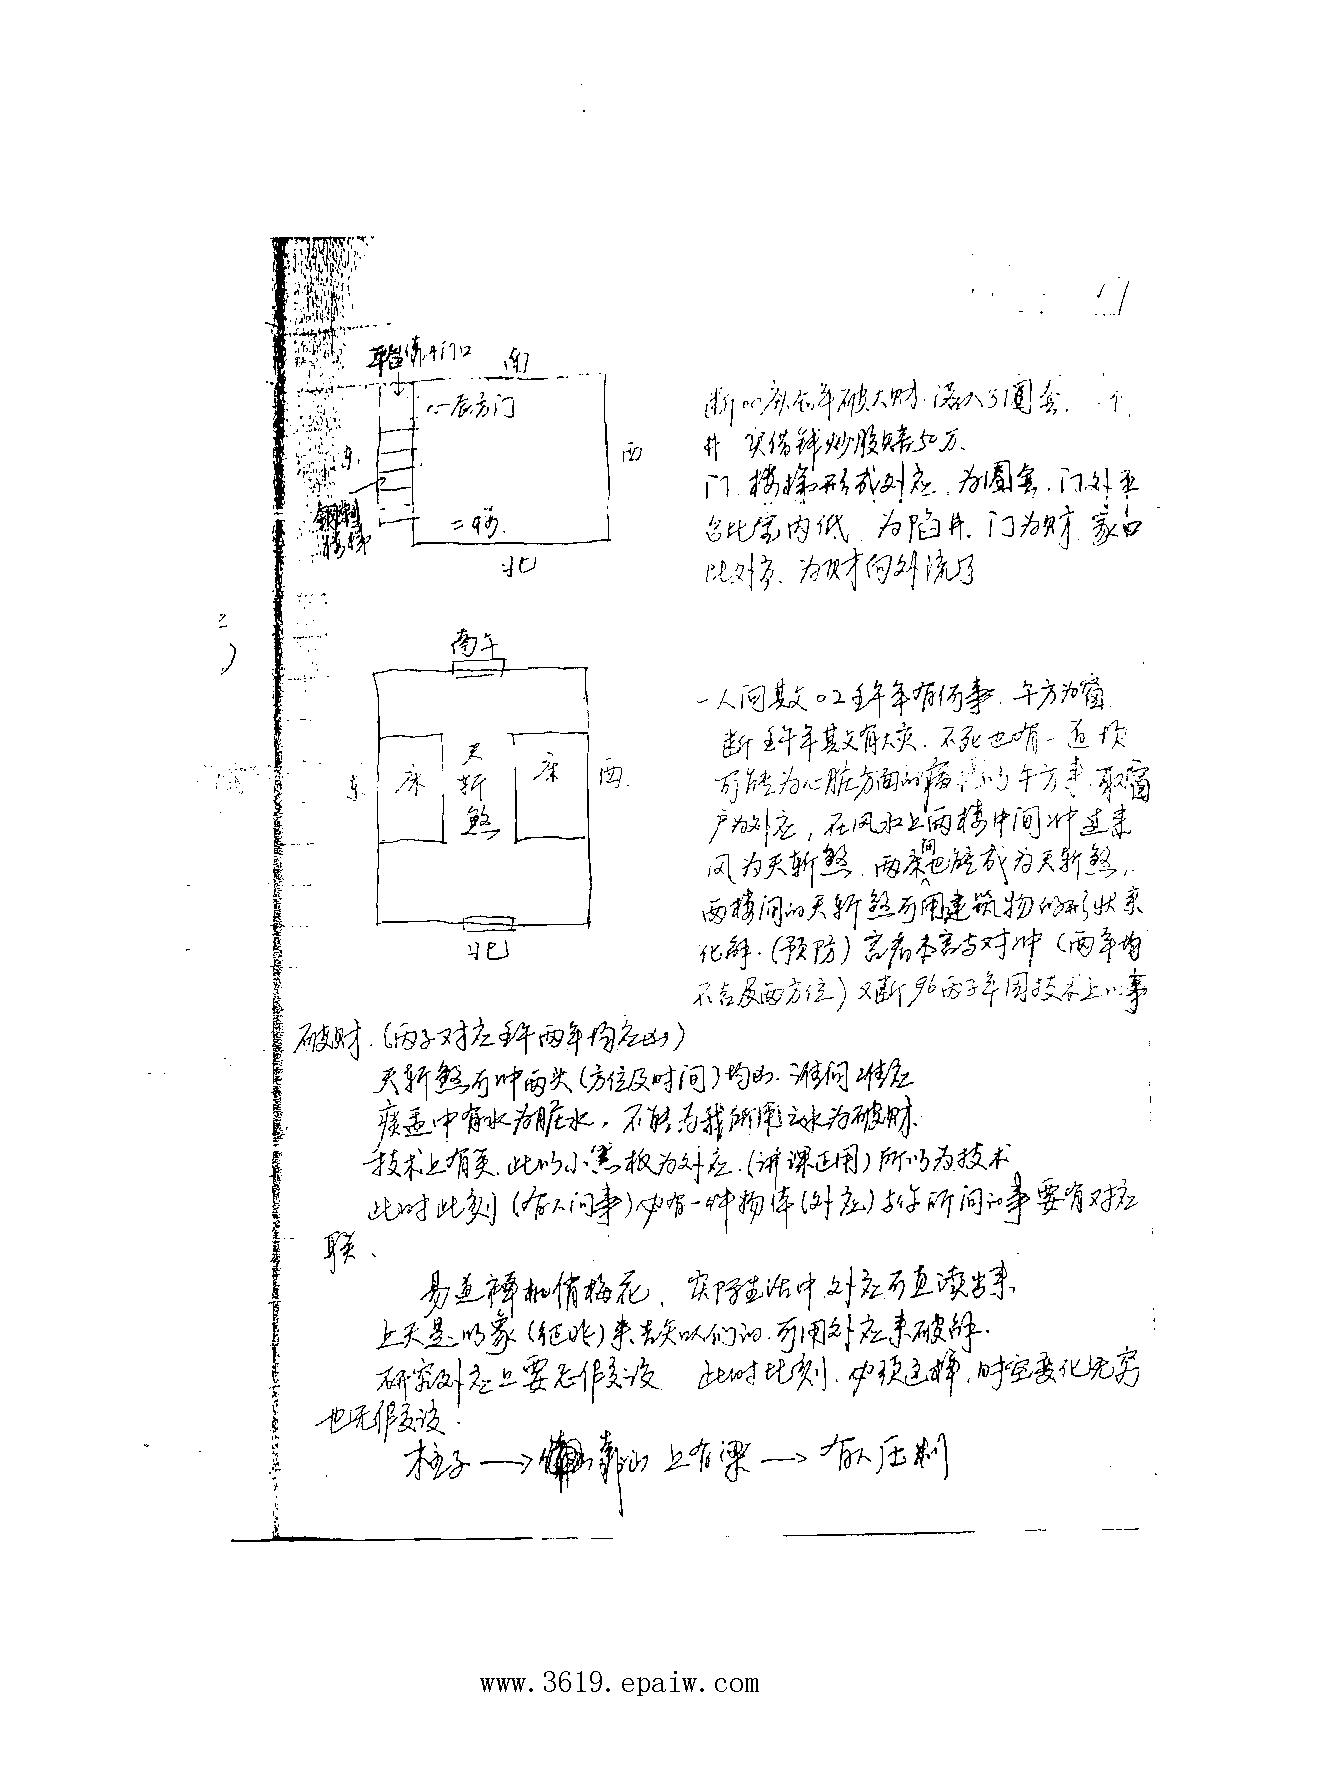 南
辰方门
西
东
钢制
楼梯
二楼
北
断00庚辰年破大财.落入引圈套.一个
井 实借钱炒股赔50万.
门.楼梯形成对应.为圈套.门外平
台比室内低.为陷井.门为财.象口
比外高.为财向外流了
南午
一人问其父02壬午年有何事.午方为窗
断壬午年其父有大灾.不死也有一道坎
可能为心脏方面的病 午方来.取窗
户为外应,在风水上两楼中间冲进来
风为天斩煞.两床间也能成为天斩煞.
东
床
天
斩
煞
床
西
两楼间的天斩煞可用建筑物的形状来
化解.(预防)言者本言与对冲(两年均
不吉及两方位)又断96丙子年因技术上的事
北
破财.(丙子对应壬午两年均应凶)
天斩煞可冲两头(方位及时间)均凶.谁问谁应
痰盂中有水为脏水,不能为我所用之水为破财.
技术上有关.此以小黑板为外应.(讲课正用)所以为技术
此时此刻(有人问事)必有一件物体(外应)与你所问的事要有对应
联、
易道禅机俏梅花.实际生活中外应可直读出来
上天是以象 来告知人们的.可用外应来破解.
研究外应上要无作假设 此时此刻.必须这样.时空变化无穷
也无作假设.
柱子→ 靠山 上有梁→有人压制
www.3619.epaiw.com